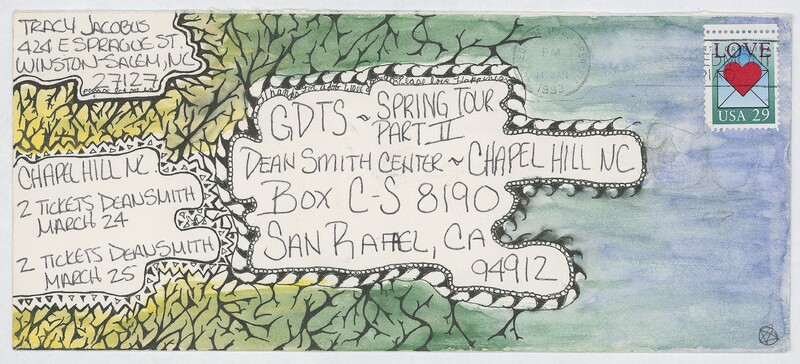 TRACY JACOBUS
424 E SPRAGUE ST.
WINSTON-SALEM, NC
27127
GDTS ~ SPRING TOUR
PART II
DEAN SMITH CENTER ~ CHAPEL HILL NC
BOX C-S 8190
SAN RAFAEL, CA
94912
CHAPEL HILL NC
2 TICKETS DEAN SMITH
MARCH 24
2 TICKETS DEAN SMITH
MARCH 25
PM
1993
LOVE
USA 29